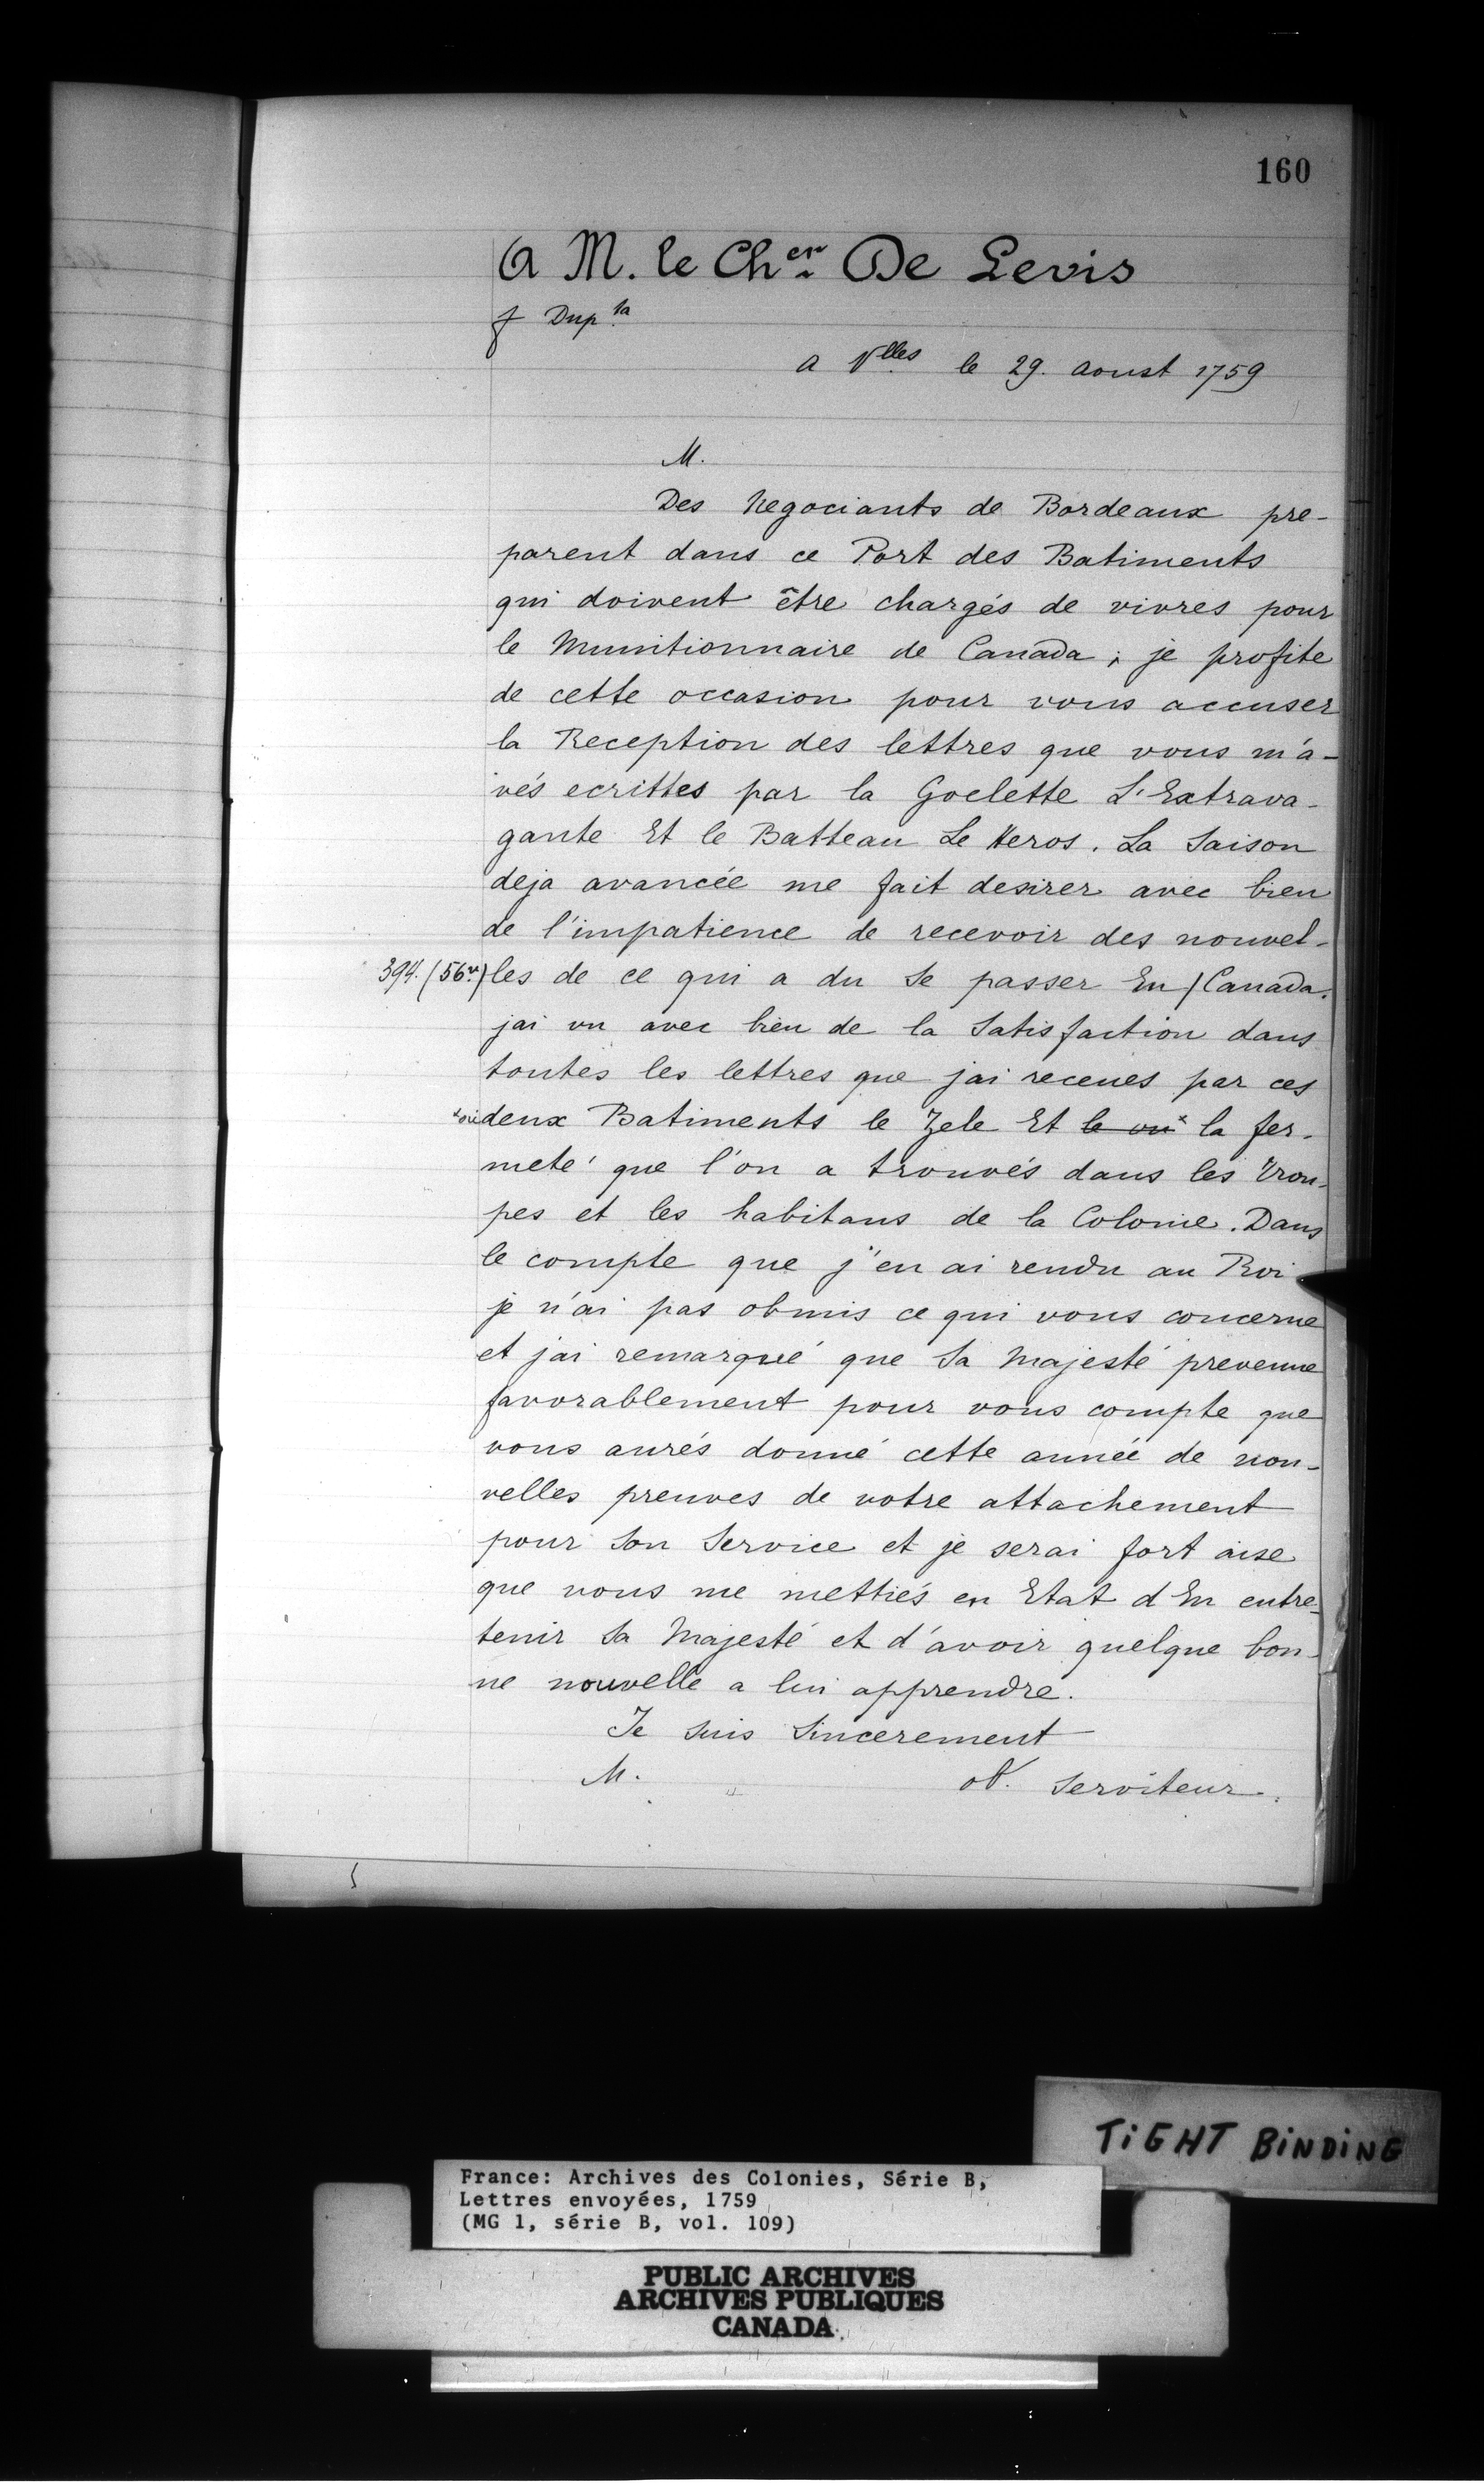 160
A M. le Ch^er De Levis
f Dup^ta
a V^lles le 29. aoust 1759
M.
Des Negociants de Bordeaux pre-
parent dans ce Port des Batiments
qui doivent être chargés de vivres pour
le Munitionnaire de Canada ; je profite
de cette occasion pour vous accuser
la Reception des lettres que vous m'a-
vés ecrittes par la Goelette L'Extrava-
gante Et le Batteau Le Heros. La Saison
deja avancée me fait desirer avec bien
de l'impatience de recevoir des nouvel-
394. (56.) les de ce qui a du Se passer En / Canada.
jai vu avec bien de la Satisfaction dans
toutes les lettres que jai receues par ces
deux Batiments le Zele Et le la fer-
meté que l'on a trouvés dans les trou-
pes et les habitans de la Colonie. Dans
le compte que j'en ai rendu au Roi
je n'ai pas obmis ce qui vous concerne
et jai remarqué que Sa Majesté prevenue
favorablement pour vous compte que
vous aurés donné cette année de nou-
velles preuves de votre attachement
pour Son Service et je serai fort aise
que vous me mettiés en Etat d En entre-
tenir Sa Majesté et d'avoir quelque bon-
ne nouvelle a lui apprendre.
Je Suis Sincerement
M. Serviteur.
TIGHT BINDING
France: Archives des Colonies, Série B,
Lettres envoyées, 1759
(MG 1, série B, vol. 109)
PUBLIC ARCHIVES
ARCHIVES PUBLIQUES
CANADA